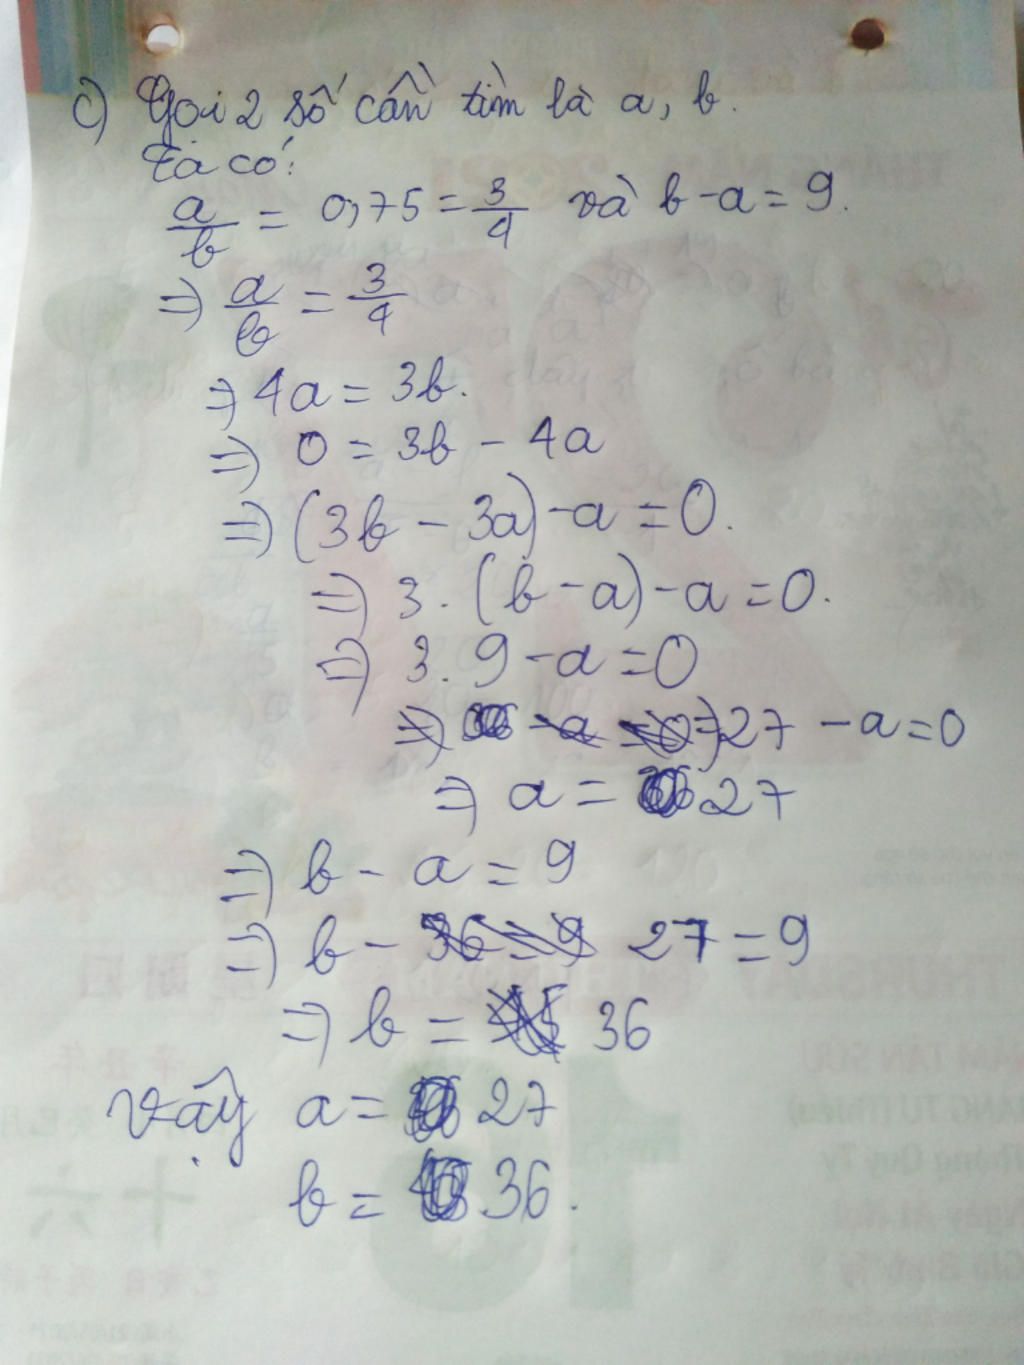 c) Gọi 2 số cần tìm là a, b.
Ta có:
a/b = 0,75 = 3/4 và b - a = 9.
=> a/b = 3/4
=> 4a = 3b.
=> 0 = 3b - 4a
=> (3b - 3a) - a = 0.
=> 3. (b - a) - a = 0.
=> 3. 9 - a = 0
=> 27 - a = 0
=> a = 27
=> b - a = 9
=> b - 27 = 9
=> b = 36
Vậy a = 27
b = 36.